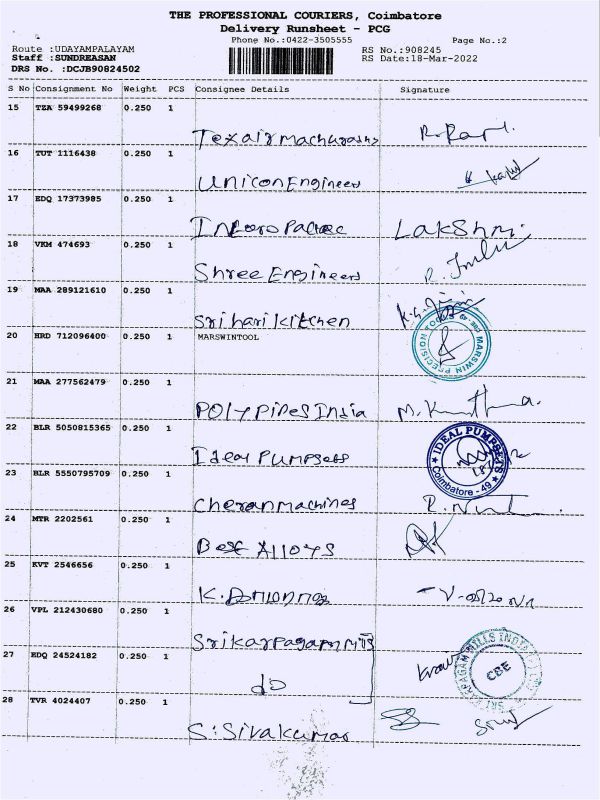 THE PROFESSIONAL COURIERS, Coimbatore
Delivery Runsheet - PCG
Phone No.:0422-3505555 Page No.:2
Route :UDAYAMPALAYAM RS No.:908245
Staff :SUNDREASAN RS Date:18-Mar-2022
DRS No. :DCJB90824502
S No Consignment No Weight PCS Consignee Details Signature
15 TZA 59499268 0.250 1
Texair R.
16 TUT 1116438 0.250 1
Unicon Engineers
17 EDQ 17373985 0.250 1
Lakshmi
18 VKM 474693 0.250 1
Shree Engineers R.
19 MAA 289121610 0.250 1
Sri hari kitchen K.S.
20 HRD 712096400 0.250 1 MARSWINTOOL
MARSWIN PRECISION TOOLS
21 MAA 277562479 0.250 1
Poly Pipes India M.
22 BLR 5050815365 0.250 1
Ideal Pumpsets
IDEAL PUMPSETS
Coimbatore - 49
23 BLR 5550795709 0.250 1
Cheran machines R.
24 MTR 2202561 0.250 1
Best Alloys
25 KVT 2546656 0.250 1
K.
26 VPL 212430680 0.250 1
Srikarpagam Mills
27 EDQ 24524182 0.250 1
do
CBE
28 TVR 4024407 0.250 1
S. Sivakumar